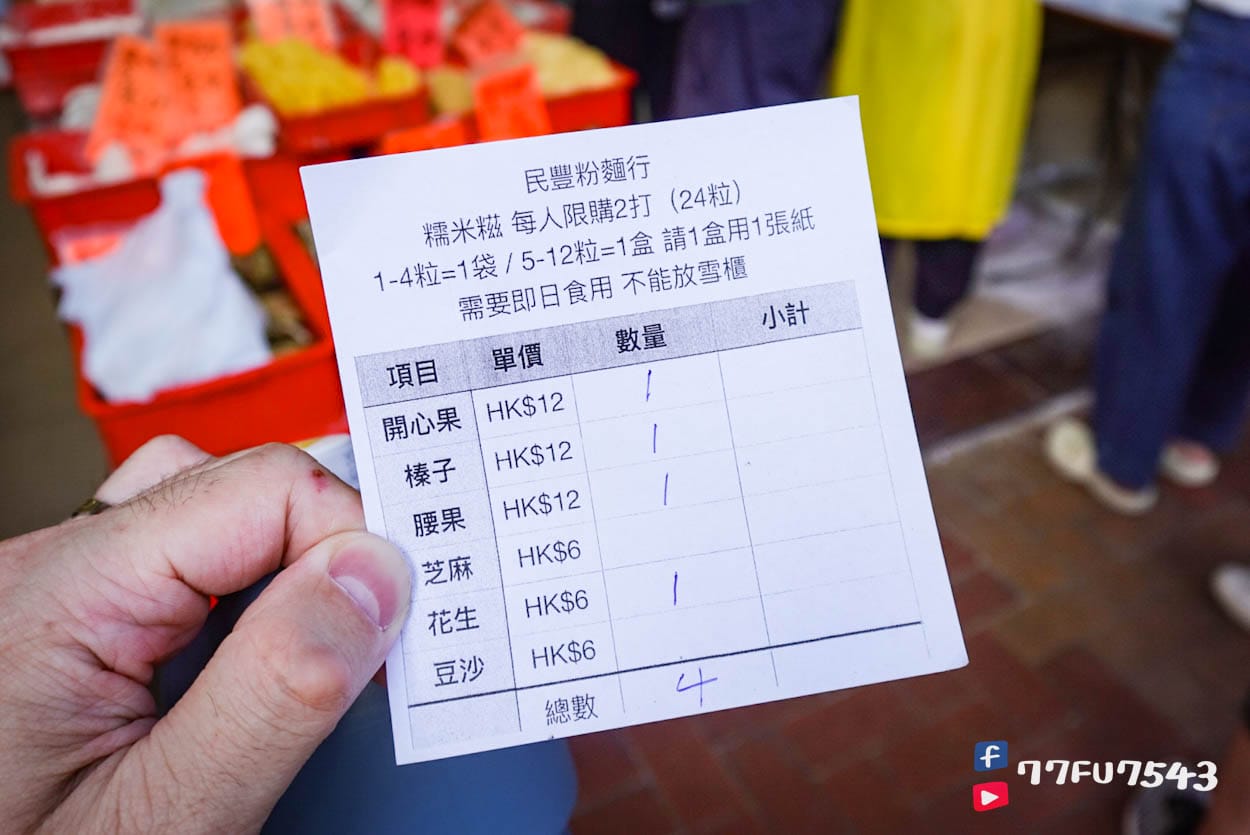 民豐粉麵行
糯米糍 每人限購2打（24粒）
1-4粒=1袋 / 5-12粒=1盒 請1盒用1張紙
需要即日食用 不能放雪櫃
項目 單價 數量 小計
開心果 HK$12 1
榛子 HK$12 1
腰果 HK$12 1
芝麻 HK$6
花生 HK$6 1
豆沙 HK$6
總數 4
f 77FU7543